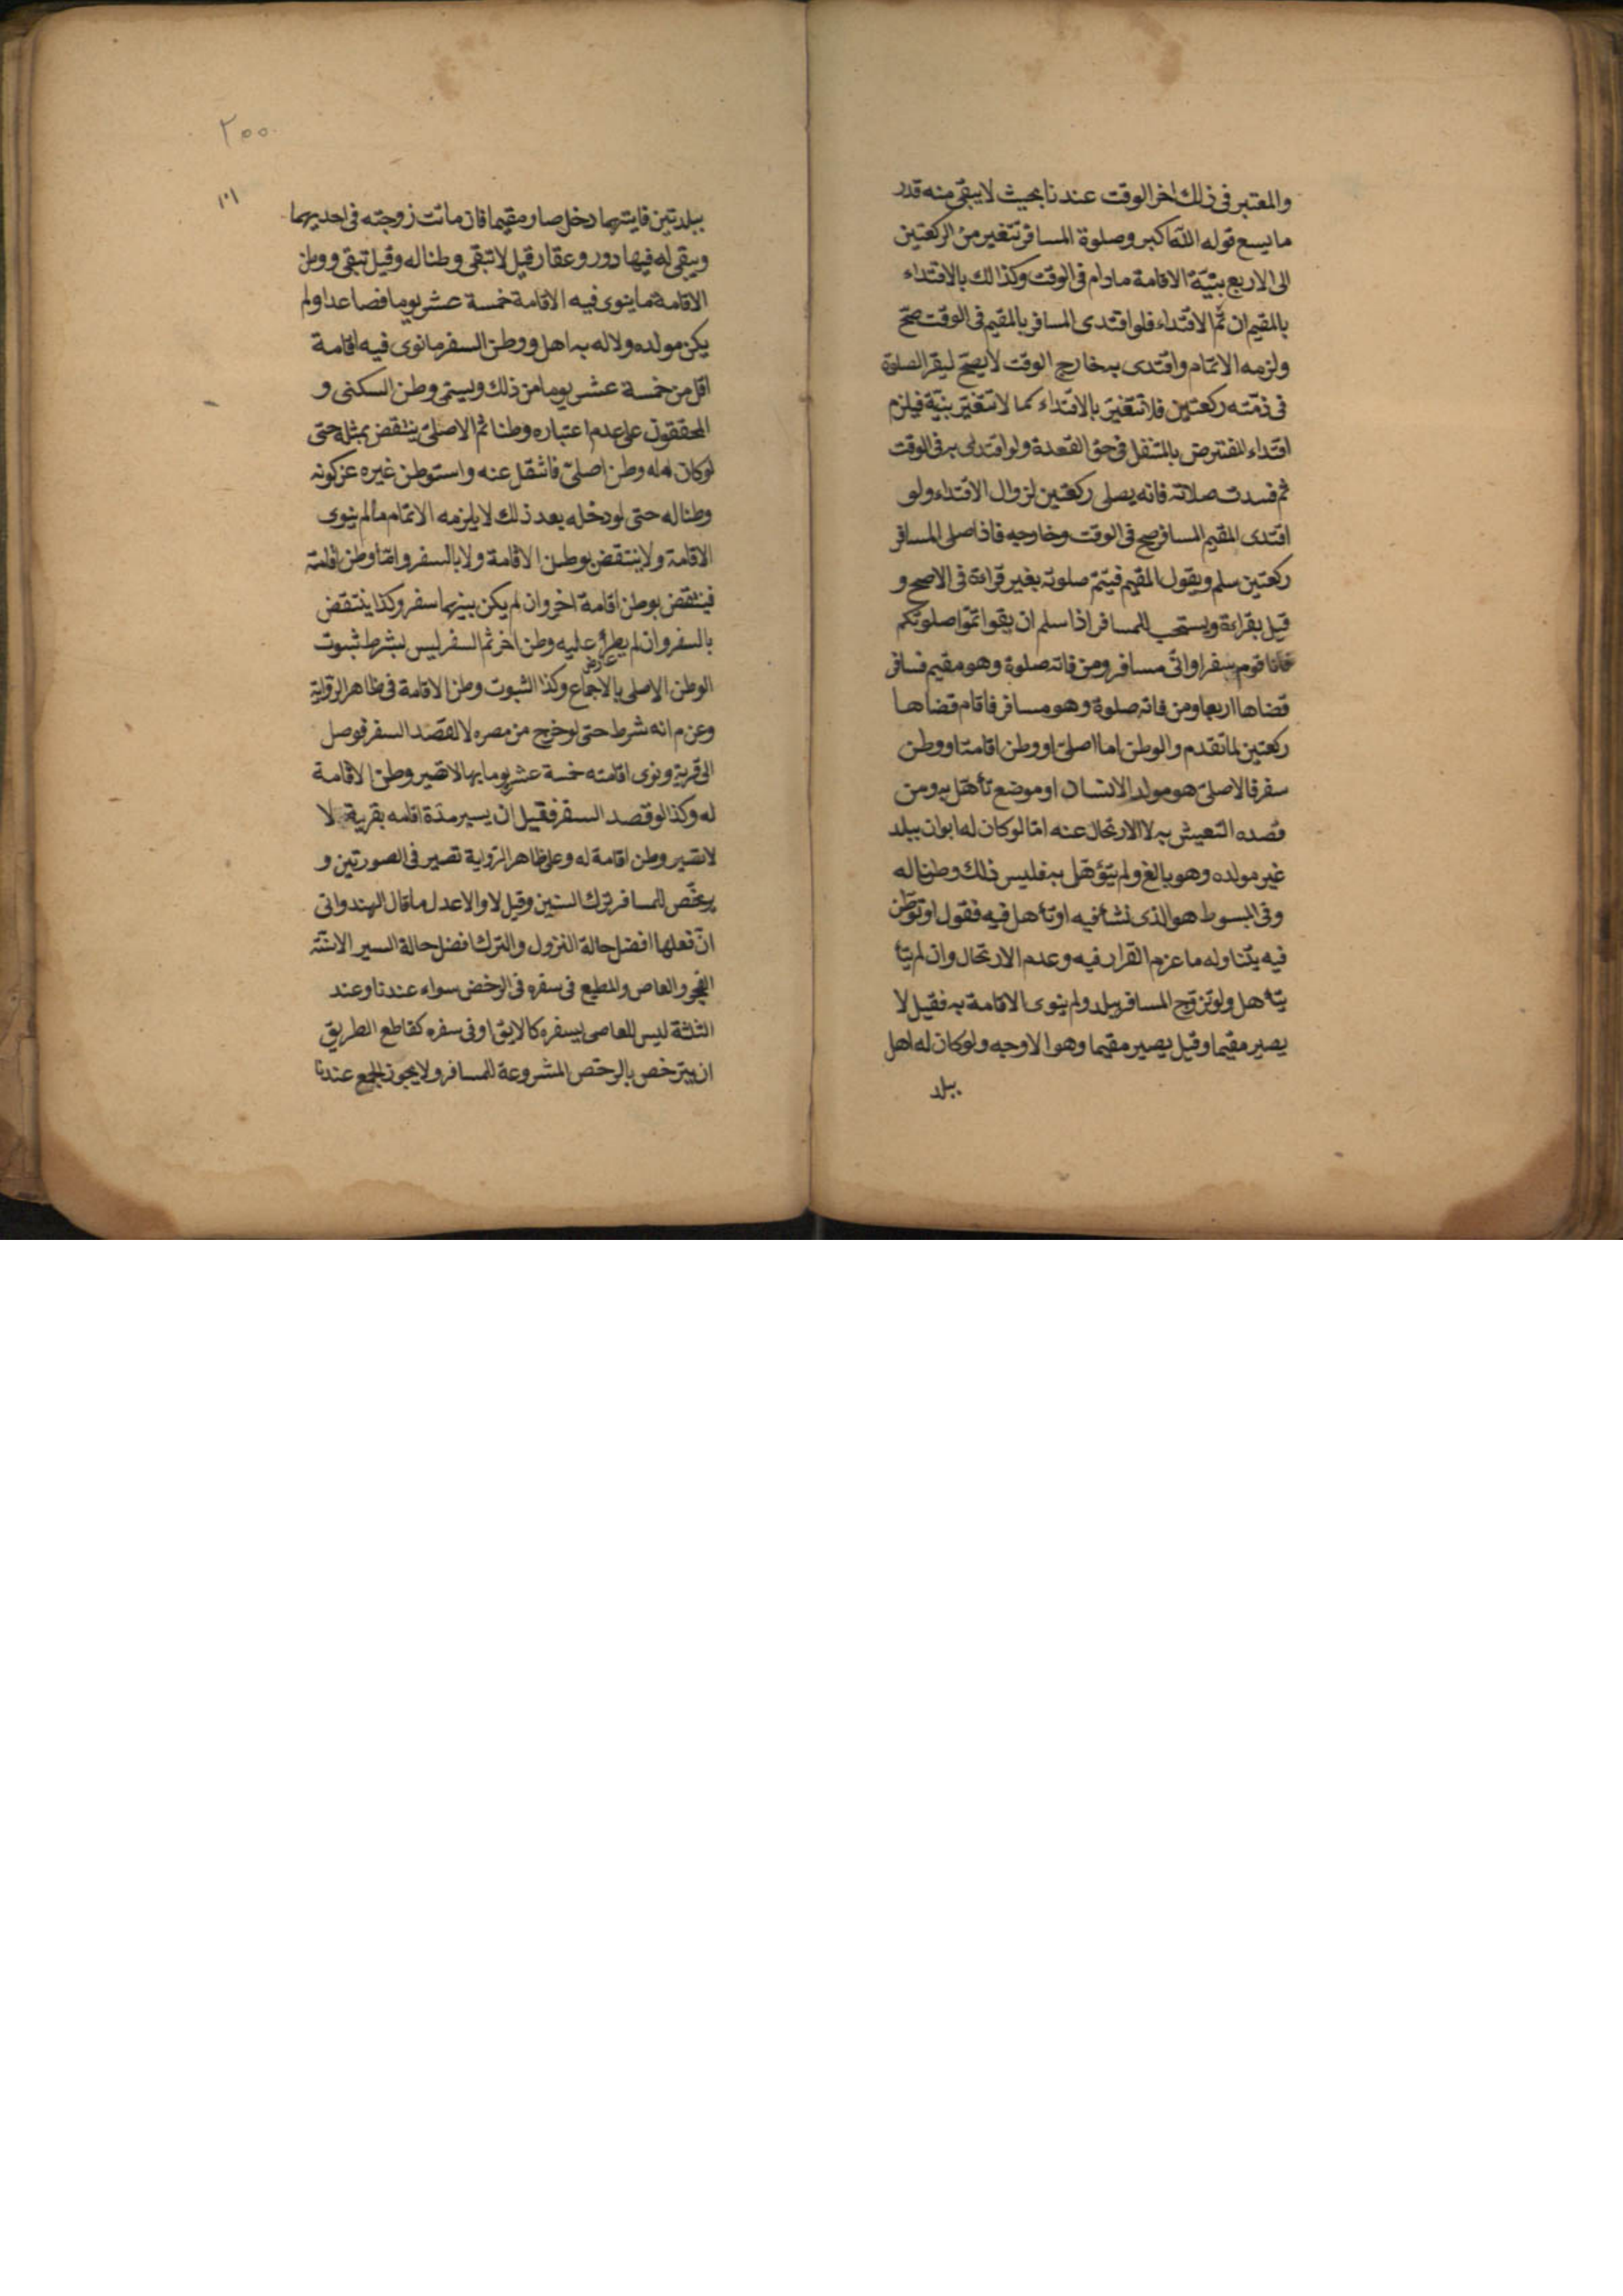 والمعتبر فى ذلك اخر الوقت عندنا بحيث لا يبقى منه قدر
ما يسع قوله الله اكبر وصلوة المسافر تتغير من الركعتين
الى الاربع بنيّة الاقامة مادام فى الوقت وكذالك بالاقتداء
بالمقيم ان تمّ الاقتداء فلو اقتدى المسافر بالمقيم فى الوقت صحّ
ولزمه الاتمام واقتدى به خارج الوقت لا يصحّ الصلوة
فى ذمّته ركعتين فلا تتغيّر بالاقتداء كما لا تتغيّر بنيّة فيلزم
اقتداء المفترض بالمتنفل فى حق القعدة ولو اقتدى به فى الوقت
ثم فسدت صلاته فانه يصلى ركعتين لزوال الاقتداء ولو
اقتدى المقيم المسافر صح فى الوقت وخارجه فاذا صلى المسافر
ركعتين سلم ويقول المقيم فيتمّ صلوته بغير قراءة فى الاصح و
قيل بقراءة ويستحب للمسافر اذا سلم ان يقو اتمّوا صلوتكم
فانا قوم سفر او انّى مسافر ومن فاته صلوة وهو مقيم فسافر
قضاها اربعا ومن فاته صلوة وهو مسافر فاقام قضاها
ركعتين لما تقدم والوطن اما اصلىّ او وطن اقامة او وطن
سفر فالاصلىّ هو مولد الانسان او موضع تأهّل به ومن
قصده التعيش به لا الارتحال عنه امّا لو كان له ابوان ببلد
غير مولده وهو بالغ ولم يتؤهّل به فليس ذلك وطنا له
وفى المبسوط هو الذى نشأ فيه او تأهل فيه فقول او توطّن
فيه يتناوله ما عزم القرار فيه وعدم الارتحال وان لم يتأ
يتأهل ولو تزوّج المسافر ببلد ولم ينوى الاقامة به فقيل لا
يصير مقيما وقيل يصير مقيما وهو الاوجه ولو كان له اهل
ببلد
٢٠٠
١٠١
ببلدتين فايتهما دخل صار مقيما فان ماتت زوجته فى احديهما
ويبقى له فيها دور وعقار قيل لا تبقى وطنا له وقيل تبقى ووطن
الاقامة ما ينوى فيه الاقامة خمسة عشر يوما فصاعدا ولم
يكن مولده ولا له به اهل ووطن السفر ما نوى فيه اقامة
اقل من خمسة عشر يوما من ذلك ويسمّى وطن السكنى و
المحققون على عدم اعتباره وطنا ثم الاصلىّ ينتقض بمثله حتى
لو كان له وطن اصلىّ فانتقل عنه واستوطن غيره عن كونه
وطنا له حتى لو دخله بعد ذلك لا يلزمه الاتمام ما لم ينوى
الاقامة ولا ينتقض بوطن الاقامة ولا بالسفر وامّا وطن اقامة
فينتقض بوطن اقامة اخر وان لم يكن بينهما سفر وكذا ينتقض
بالسفر وان لم يطرأ عليه وطن اخر ثم السفر ليس بشرط ثبوت
الوطن الاصلى بالاجماع وكذا الثبوت وطن الاقامة فى ظاهر الرّواية
وعن م انه شرط حتى لو خرج من مصره لا لقصد السفر فوصل
الى قرية ونوى اقامته خمسة عشر يوما بها لا تصير وطن الاقامة
له وكذا لو قصد السفر فقيل ان يسير مدّة اقامه بقرية لا
لا تصير وطن اقامة له وعلى ظاهر الرّواية تصير فى الصورتين و
يرخّص للمسافر ترك السنن وقيل لا والاعدل ما قال الهندوانى
انّ فعلها افضل حالة النزول والترك افضل حالة السير الا سنّة
الفجر والعاص والمطيع فى سفره فى الرخص سواء عندنا وعند
الثلثة ليس للعاصى بسفره كالابق او فى سفره كقاطع الطريق
ان يترخص بالرخص المشروعة للمسافر ولا يجوز الجمع عندنا